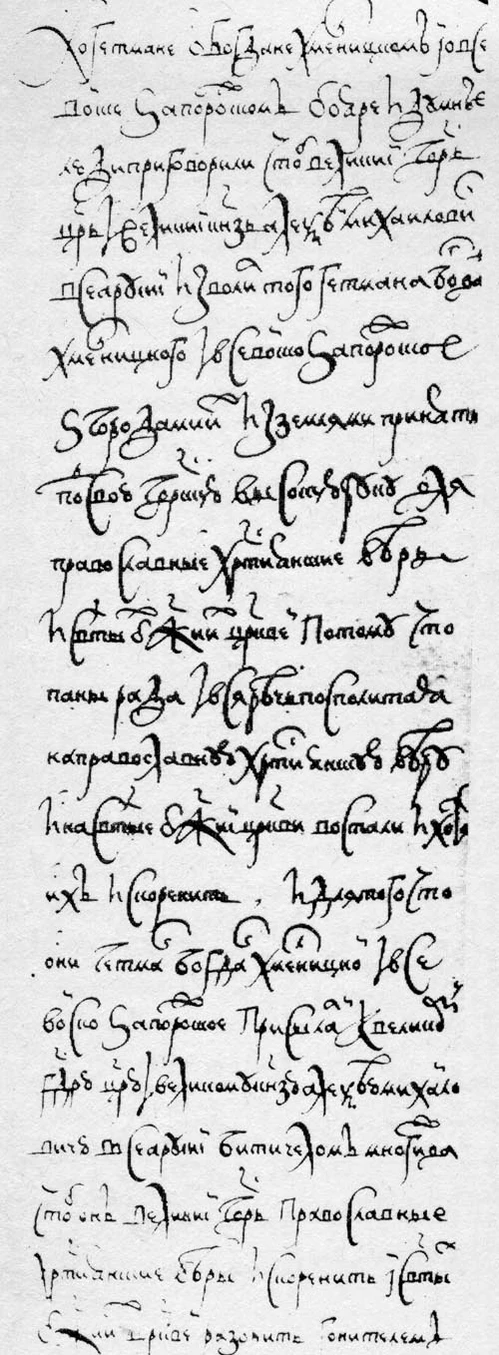 А о гетмане о Богдане Хмелницком и о все
войске Запорожском бояре и думные
люди приговорили чтоб великий гдрь
црь и великий кнзь Алексей Михайлович
всеа Русии изволил того гетмана Богдана
Хмелницкого и все войско Запорожское
з городами их и з землями принять
под свою гдрскую высокую руку для
православные християнские веры
и святых божиих црквей потому что
паны рада и вся Речь Посполитая
на православную християнскую веру
и на святые божии цркви востали и хотят
их искоренить и для того что
они гетман Богдан Хмелницкой и все
войско Запорожское присылали к великому
гдрю црю и великому кнзю Алексею Михайло
вичю всеа Русии бити челом многижда
чтоб он великий гдрь православные
християнские веры искоренить и святых
божиих црквей разорить гонителем